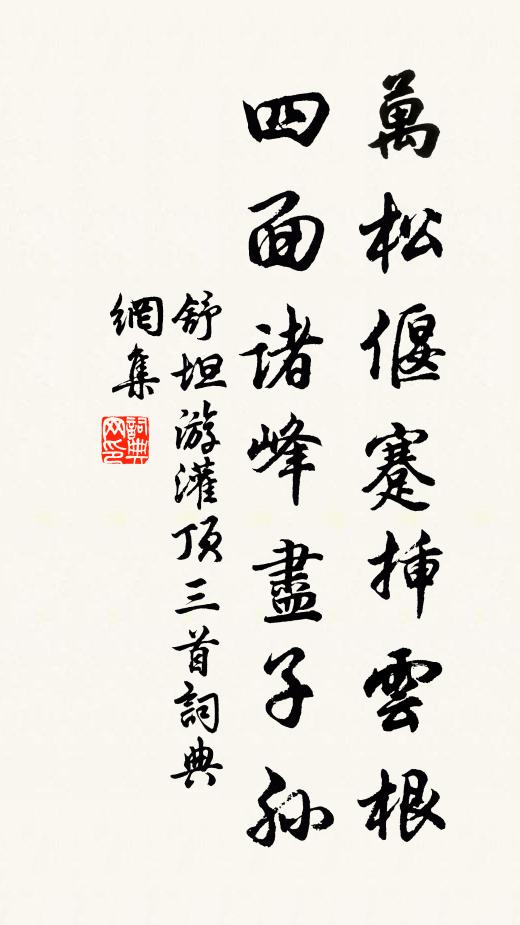 萬松偃蹇插雲根
四面诸峰盡子孙
舒坦游灌顶三首詞典
網集
詞典网印